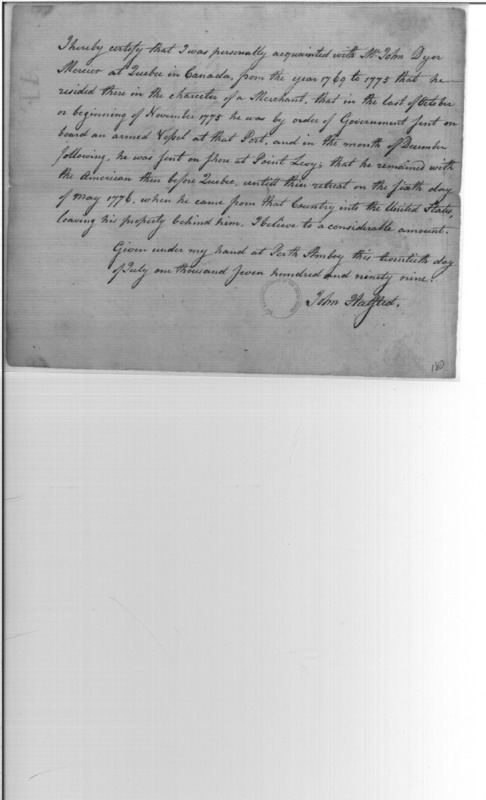 I hereby certify that I was personally acquainted with Mr. John Dyer
Mercier at Quebec in Canada, from the year 1769 to 1775 that he
resided there in the character of a Merchant, that in the last of October
or beginning of November 1775 he was by order of Government sent on
board an armed Vessel at that Port, and in the month of December
following, he was sent on shore at Point Levy; that he remained with
the American then before Quebec, untill their retreat on the sixth day
of May 1776, when he came from that Country into the United States,
leaving his property behind him, I believe to a considerable amount.
Given under my hand at Perth Amboy this twentieth day
of July one thousand seven hundred and ninety nine.
John Halsted.
180